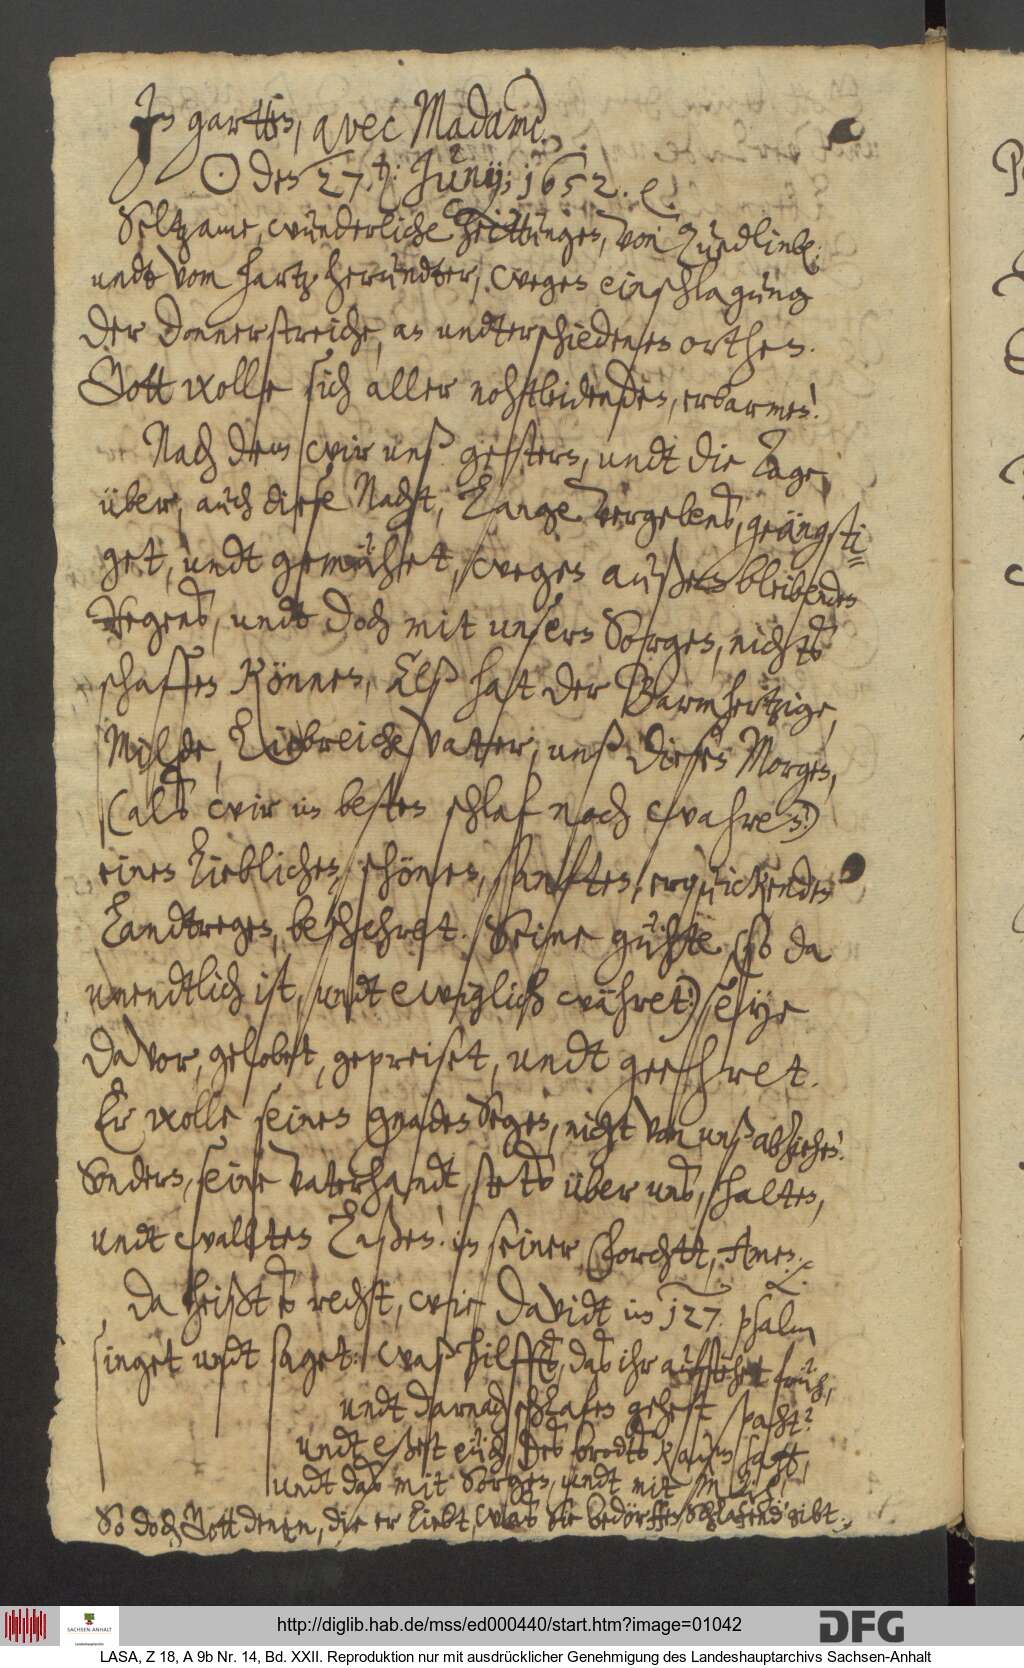 In gartten, avec Madame.
☉ den 27.t: Junij; 1652.
Seltzame, wunderliche Zeittungen, von Quedlinb:
undt vom Hartz herundter, wegen einschlagung
der donnerstreiche, an undterschiedenen orthen.
Gott wolle sich aller nohtleidenden, erbarmen!
Nach dem wir unß gestern, undt die Tage
über, auch diese Nacht, lange vergebens, geängsti=
get, undt gemühet, wegen außen bleibenden
Regens, undt doch mit unsern Sorgen, nichts
schaffen können, Alß hat der Barmhertzige,
Milde, Liebreiche Vatter, unß diesen Morgen,
(als wir im besten schlaf noch wahren:)
einen lieblichen, schönen, sanften, erquickenden
Landtregen, beschehret. Seine gühte (so da
unendtlich ist, undt ewiglich währet:) seye
davor, gelobet, gepreiset, undt geehret.
Er wolle seinen gnaden Segen, nicht von unß abziehen!
Sondern, seine Vaterhandt, stets über uns, halten,
undt walten laßen! in seiner Forchtt, Amen.
Da heißt es recht, wie Davidt im 127. psalm
singet undt saget: Waß hilffts, das ihr aufstehet früh,
undt darnach schlafen gehest spaht?
undt eßest euch, des brodts kaum satt,
undt das mit Sorgen, undt mit
So doch Gott denen, die er liebt, was Sie bedörffen, Schlafend gibt.
http://diglib.hab.de/mss/ed000440/start.htm?image=01042
SACHSEN-ANHALT
DFG
LASA, Z 18, A 9b Nr. 14, Bd. XXII. Reproduktion nur mit ausdrücklicher Genehmigung des Landeshauptarchivs Sachsen-Anhalt